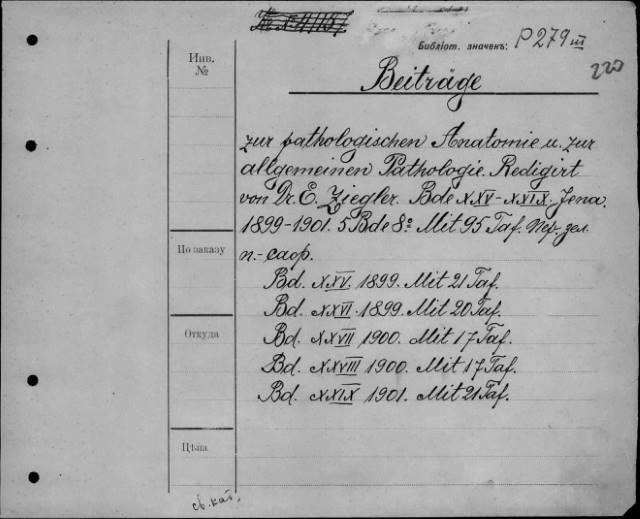 Библіот. значекъ: P 279 III
220
Инв.
№
Beiträge
zur pathologischen Anatomie u. zur
allgemeinen Pathologie. Redigirt
von Dr. E. Ziegler. Bde XXV-XXIX. Jena.
1899-1901. 5 Bde 8º Mit 95 Taf. Пер. зел.
п.-сафр.
По заказу
Bd. XXV. 1899. Mit 21 Taf.
Bd. XXVI. 1899. Mit 20 Taf.
Откуда
Bd. XXVII 1900. Mit 17 Taf.
Bd. XXVIII 1900. Mit 17 Taf.
Bd. XXIX 1901. Mit 21 Taf.
Цѣна
св. кат.